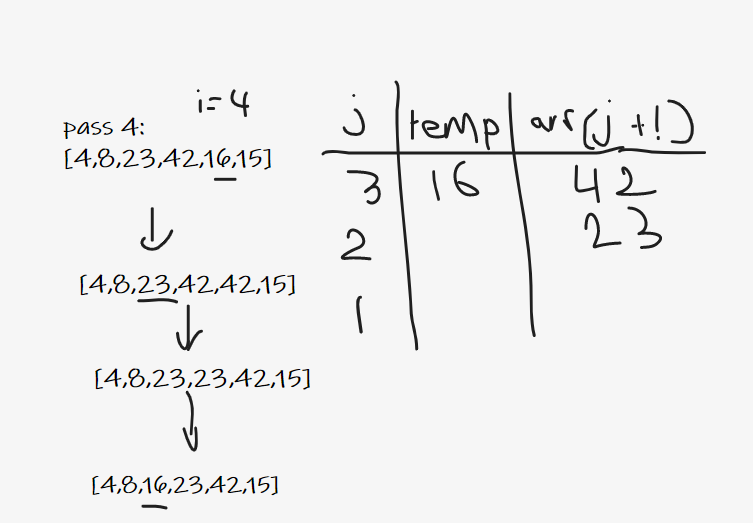 i=4
pass 4:
[4,8,23,42,16,15]
[4,8,23,42,42,15]
[4,8,23,23,42,15]
[4,8,16,23,42,15]
j temp arr(j+!)
3 16 42
2 23
1